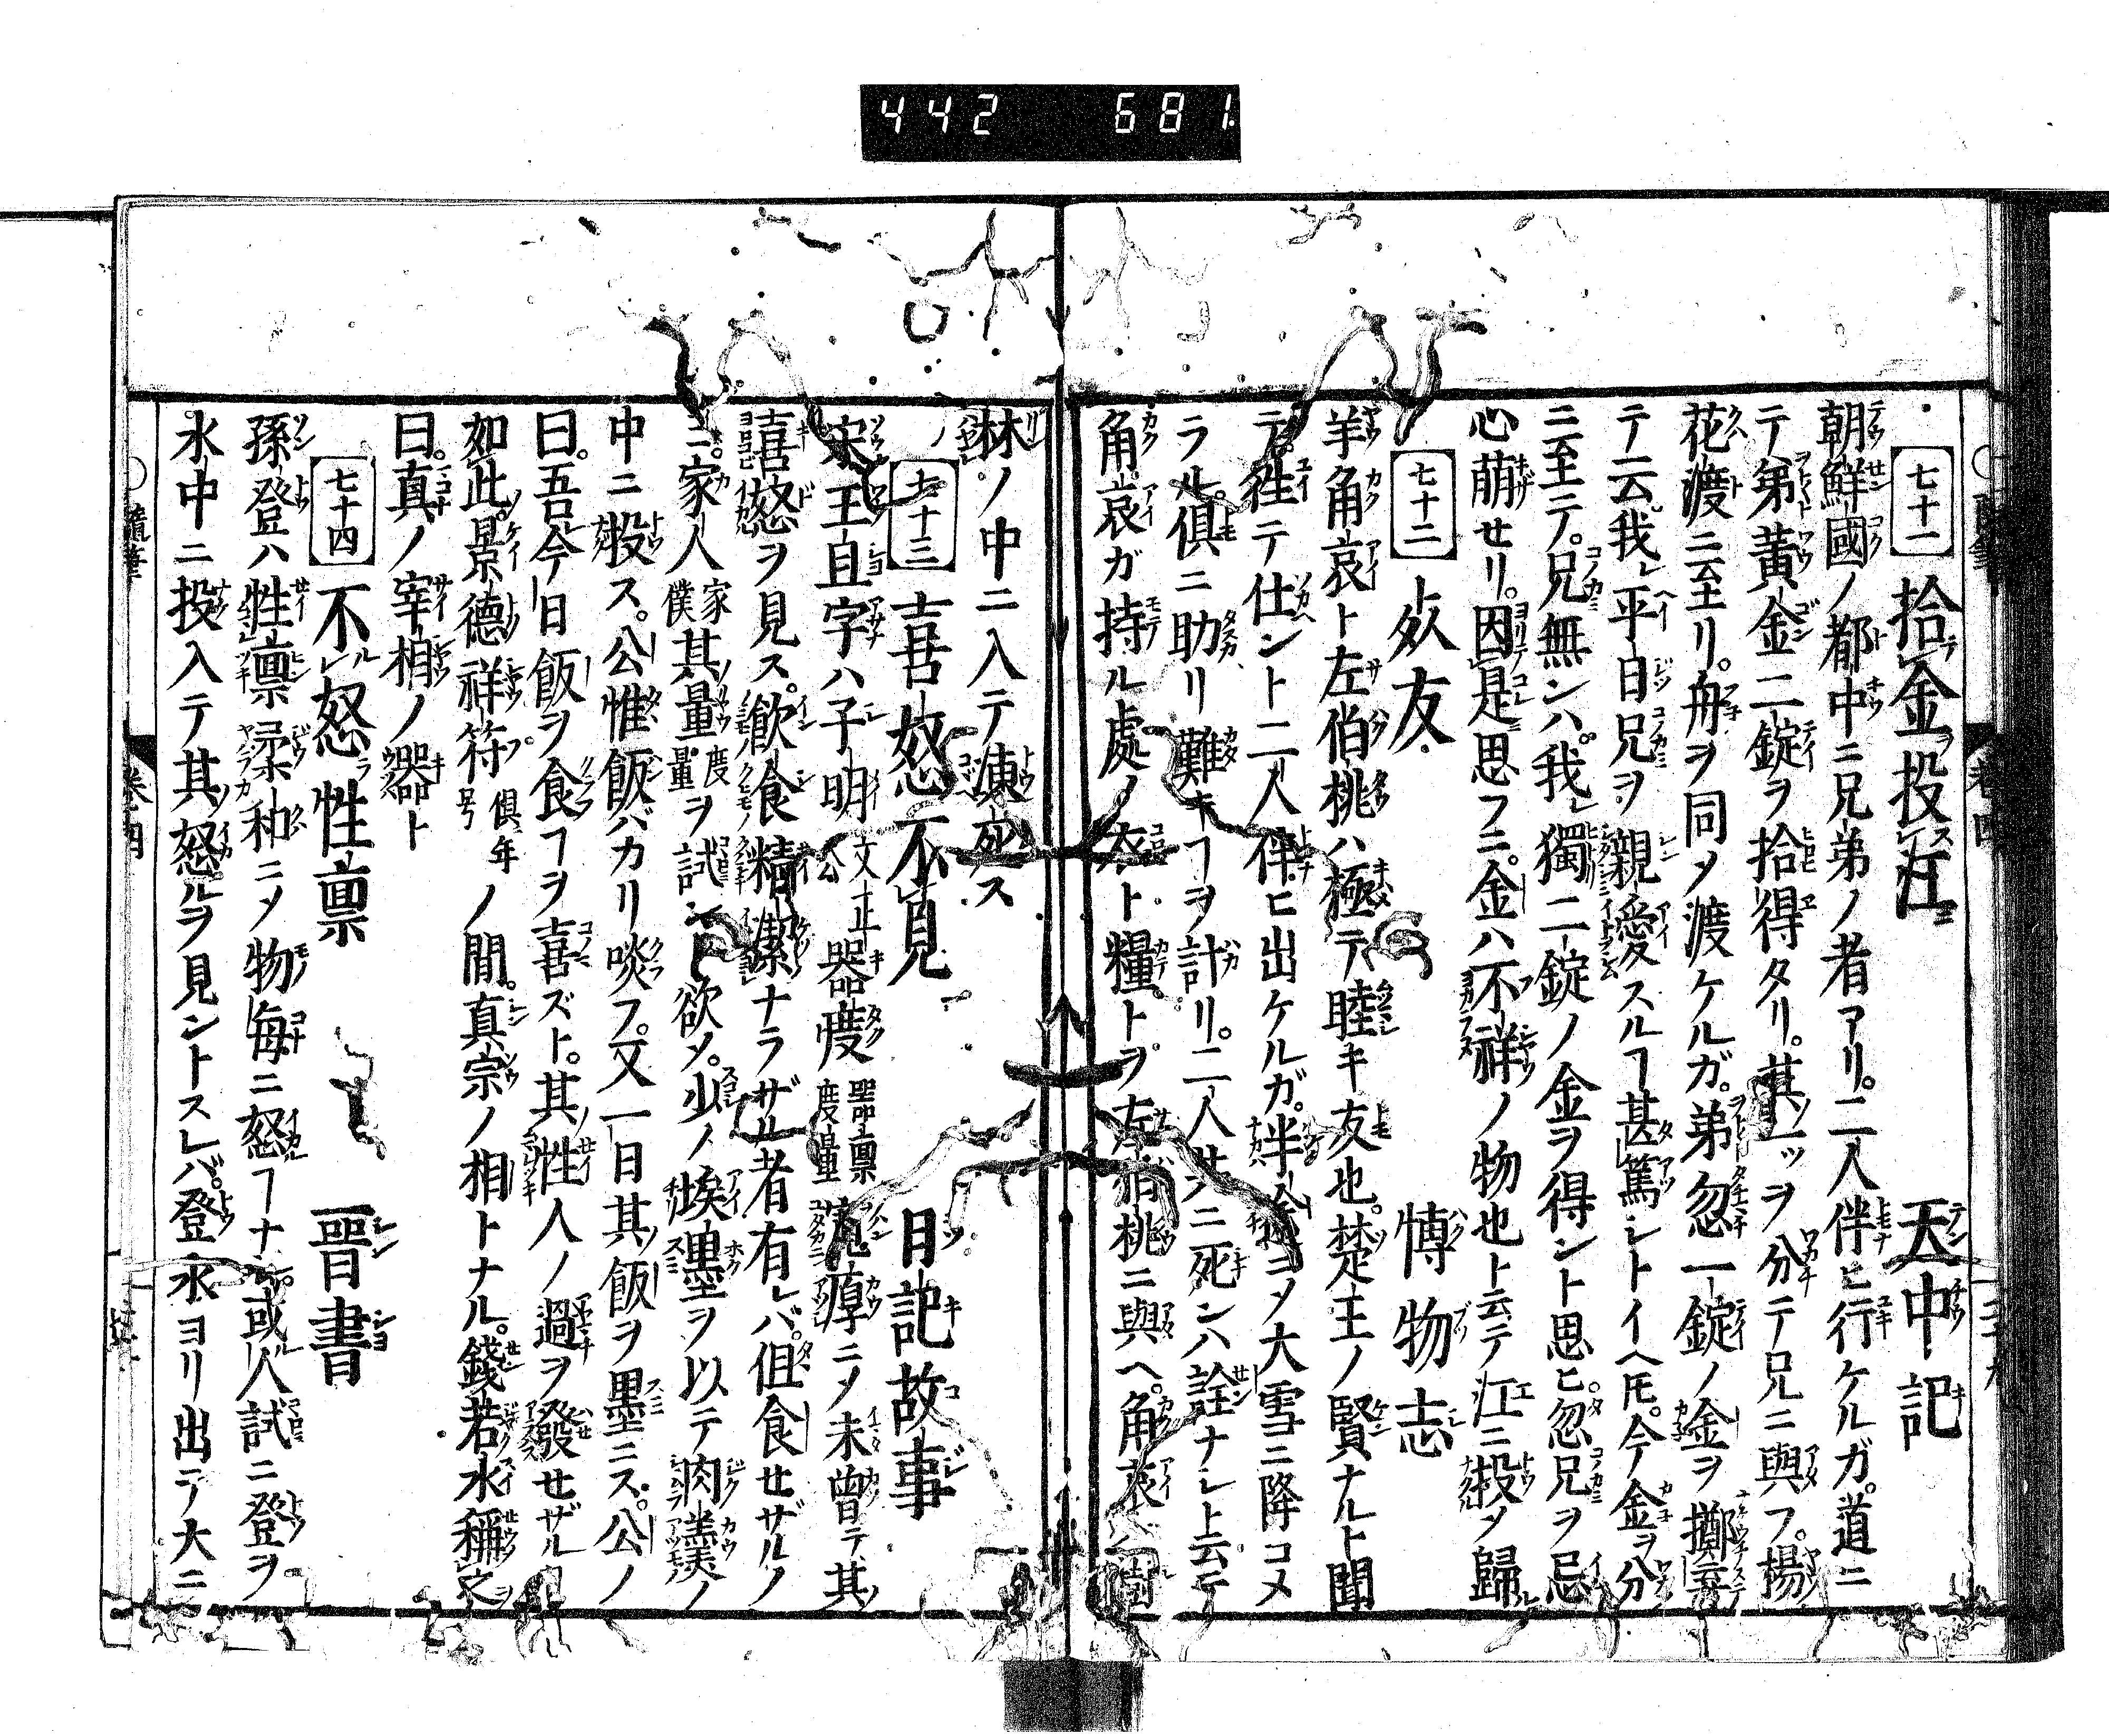 442 681
七十一 拾金投江 天中記
朝鮮國ノ都中ニ兄弟ノ者アリ。二人伴ヒ行ケルガ。道ニ
テ弟黄金二錠ヲ拾得タリ。其一ツヲ分テ兄ニ與フ。楊
花渡ニ至リ。舟ヲ同メ渡ケルガ。弟忽一錠ノ金ヲ擲弃
テ云。我レ平日兄ヲ親愛スルヿ甚篤シトイヘ𪜈。今金ヲ分
ニ至テ。兄無ンハ。我レ獨二錠ノ金ヲ得ント思ヒ。忽兄ヲ忌
心萠セリ。因是思フニ。金ハ不祥ノ物也ト云テ江ニ投メ歸
七十二 友 博物志
羊角哀ト左伯桃ハ極テ睦キ友也。楚王ノ賢ナルト聞
テ。徃テ仕ント二人伴ヒ出ケルガ。半途ニメ大雪ニ降コメ
ラル。俱ニ助リ難キヿヲ計リ。二人共ニ死ンハ詮ナシト云テ
角哀ガ持ル處ノ衣ト糧トヲ左伯桃ニ與ヘ。角哀ハ樹
林ノ中ニ入テ凍死ス
七十三 喜怒不見 日記故事
宋王旦字ハ子明文正公器度器禀度量寬厚ニメ未曾テ其
囍怒ヲ見ス。飲食精潔ナラザル者有レバ。但食セザルノ
ミ。家人家僕其量度量ヲ試ント欲メ。少ノ埃墨ヲ以テ肉羹ノ
中ニ投ス。公惟飯バカリ啖フ。又一日其飯ヲ墨ニス。公ノ
曰。吾今日飯ヲ食ヿヲ喜ズト。其性人ノ過ヲ發セザルヿ
如此。景德祥符俱年号ノ間。真宗ノ相トナル。錢若水稱之
曰。真ノ宰相ノ器ト
七十四 不怒性禀 晋書
孫登ハ性禀柔和ニメ物毎ニ怒ヿナシ。或人試ニ登ヲ
水中ニ投入テ其怒ルヲ見ントスレバ。登水ヨリ出テ大ニ